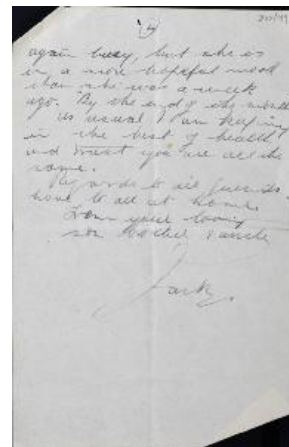 4
again busy, but she is
in a more hopeful mood
than she was a week
ago. By the end of the month
As usual I am keeping
in the best of health
and trust you are all the
same.
Regards to all friends
love to all at home
From your loving
son brother & uncle
Jack.